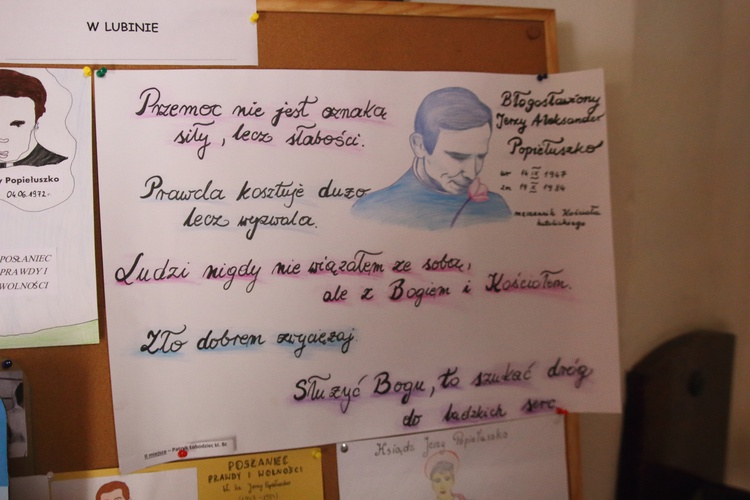 W LUBINIE
Przemoc nie jest oznaką
siły, lecz słabości.
Błogosławiony
Jerzy Aleksander
Popiełuszko
ur 14 IX 1947
zm 19 X 1984
męczennik Kościoła
katolickiego
Prawda kosztuje dużo
lecz wyzwala.
Ludzi nigdy nie wiązałem ze sobą,
ale z Bogiem i Kościołem.
Zło dobrem zwyciężaj.
Służyć Bogu, to szukać dróg
do ludzkich serc
y Popiełuszko
04.06.1972
POSŁANIEC
PRAWDY I
WOLNOŚCI
POSŁANIEC
PRAWDY I WOLNOŚCI
Ksiądz Jerzy Popiełuszko